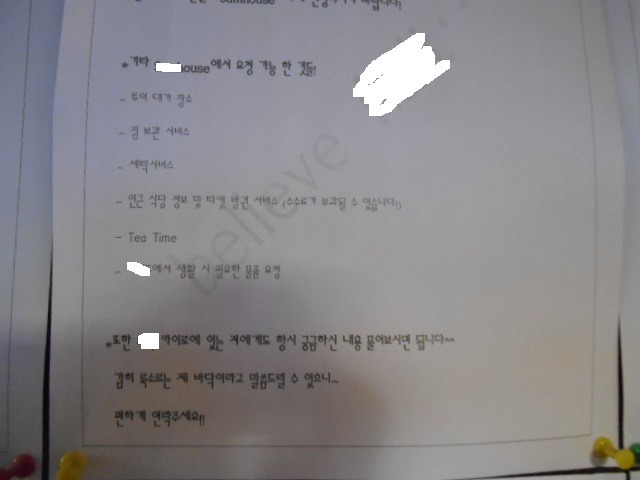 *기타 house에서 요청 가능 한 것들!
- 투어 대기 장소
- 짐 보관 서비스
- 세탁서비스
- 인근 식당 정보 및 티켓 발권 서비스 (수수료가 부과될 수 있습니다!)
- Tea Time
- 에서 생활 시 필요한 물품 요청
*또한 카이로에 있는 저에게도 항시 궁금하신 내용 물어보시면 됩니다^^
감히 룩소르는 제 바닥이라고 말씀드릴 수 있으니~
편하게 연락주세요!!
believe